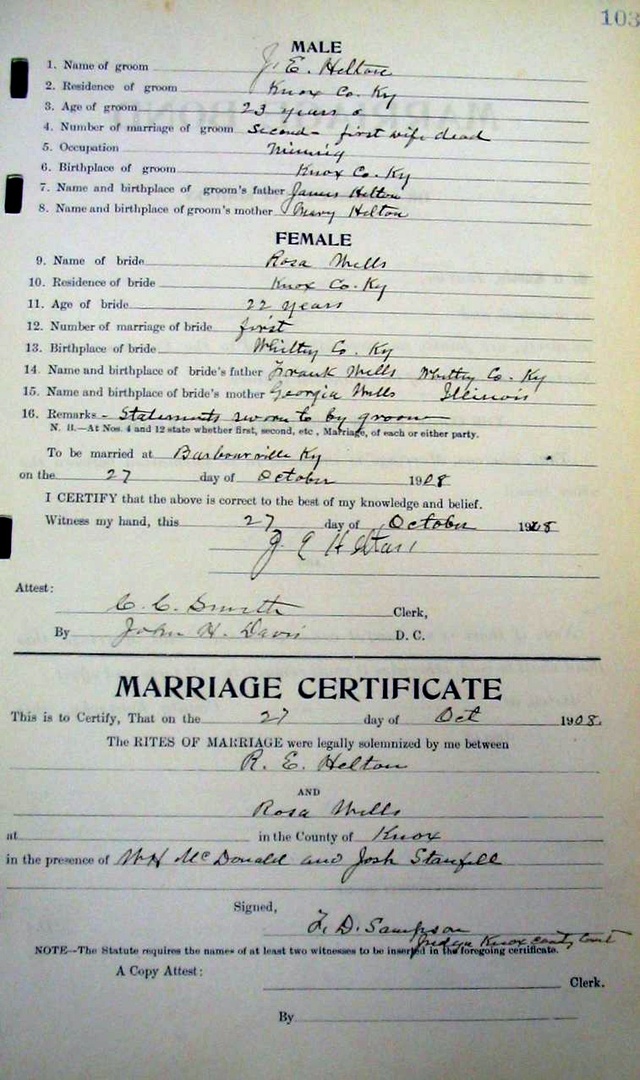 103
MALE
1. Name of groom J. E. Helton
2. Residence of groom Knox Co. Ky
3. Age of groom 23 years
4. Number of marriage of groom Second - first wife dead
5. Occupation Mining
6. Birthplace of groom Knox Co. Ky
7. Name and birthplace of groom's father James Helton
8. Name and birthplace of groom's mother Mary Helton
FEMALE
9. Name of bride Rosa Mills
10. Residence of bride Knox Co. Ky
11. Age of bride 22 years
12. Number of marriage of bride first
13. Birthplace of bride Whitley Co. Ky
14. Name and birthplace of bride's father Frank Mills Whitley Co. Ky
15. Name and birthplace of bride's mother Georgia Mills Illinois
16. Remarks - Statements sworn to by groom
N. B.—At Nos. 4 and 12 state whether first, second, etc., Marriage, of each or either party.
To be married at Barbourville Ky
on the 27 day of October 1908
I CERTIFY that the above is correct to the best of my knowledge and belief.
Witness my hand, this 27 day of October 1908
J E Helton
Attest:
C. C. Smith Clerk,
By John H. Davis D. C.
MARRIAGE CERTIFICATE
This is to Certify, That on the 27 day of Oct 1908.
The RITES OF MARRIAGE were legally solemnized by me between
R. E. Helton
AND
Rosa Mills
at in the County of Knox
in the presence of W H McDonald and Josh Stanfill
Signed,
F. D. Sampson
Judge Knox County Court
NOTE—The Statute requires the names of at least two witnesses to be inserted in the foregoing certificate.
A Copy Attest:
Clerk.
By